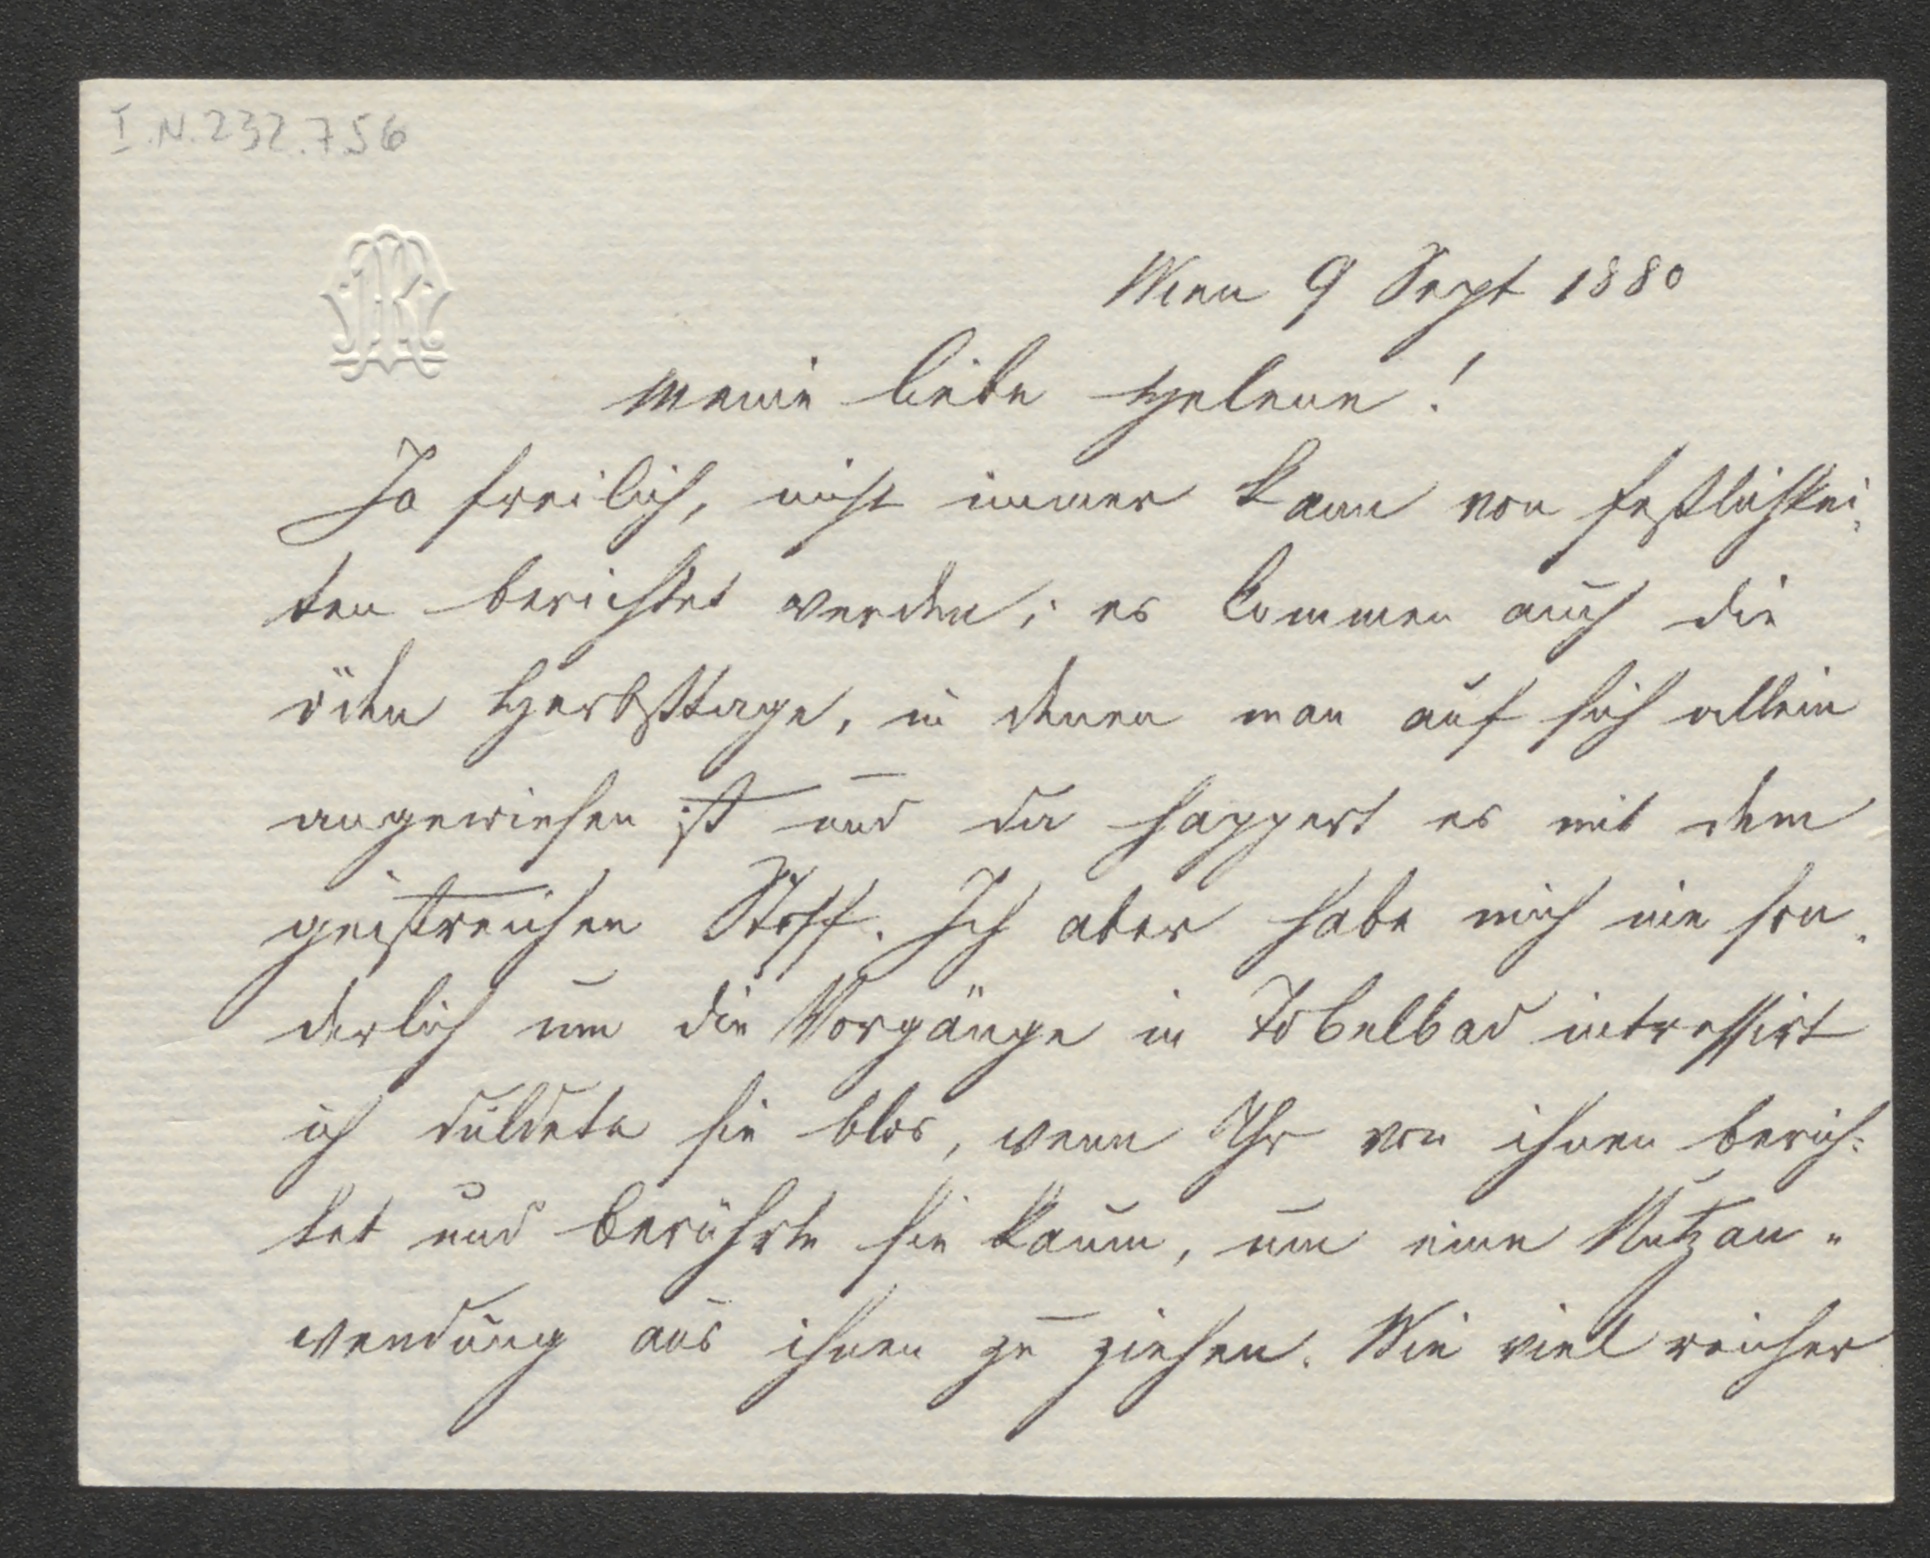 I.N. 232.756
Wien 9 Sept 1880
Meine liebe Helene!
Ja freilich, nicht immer kann von Festlichkei-
ten berichtet werden; es kommen auch die
öden Herbsttage, in denen man auf sich allein
angewiesen ist und da happert es mit dem
geistreichen Stoff. Ich aber habe mich nie son-
derlich um die Vorgänge in Tobelbad intressirt
ich duldete sie blos, wenn Ihr von ihnen berich-
tet und berührte sie kaum, um eine Nutzan-
wendung aus ihnen zu ziehen. Wie viel reicher